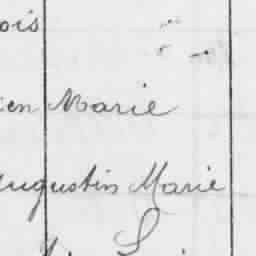 ois
en Marie
Augustin Marie